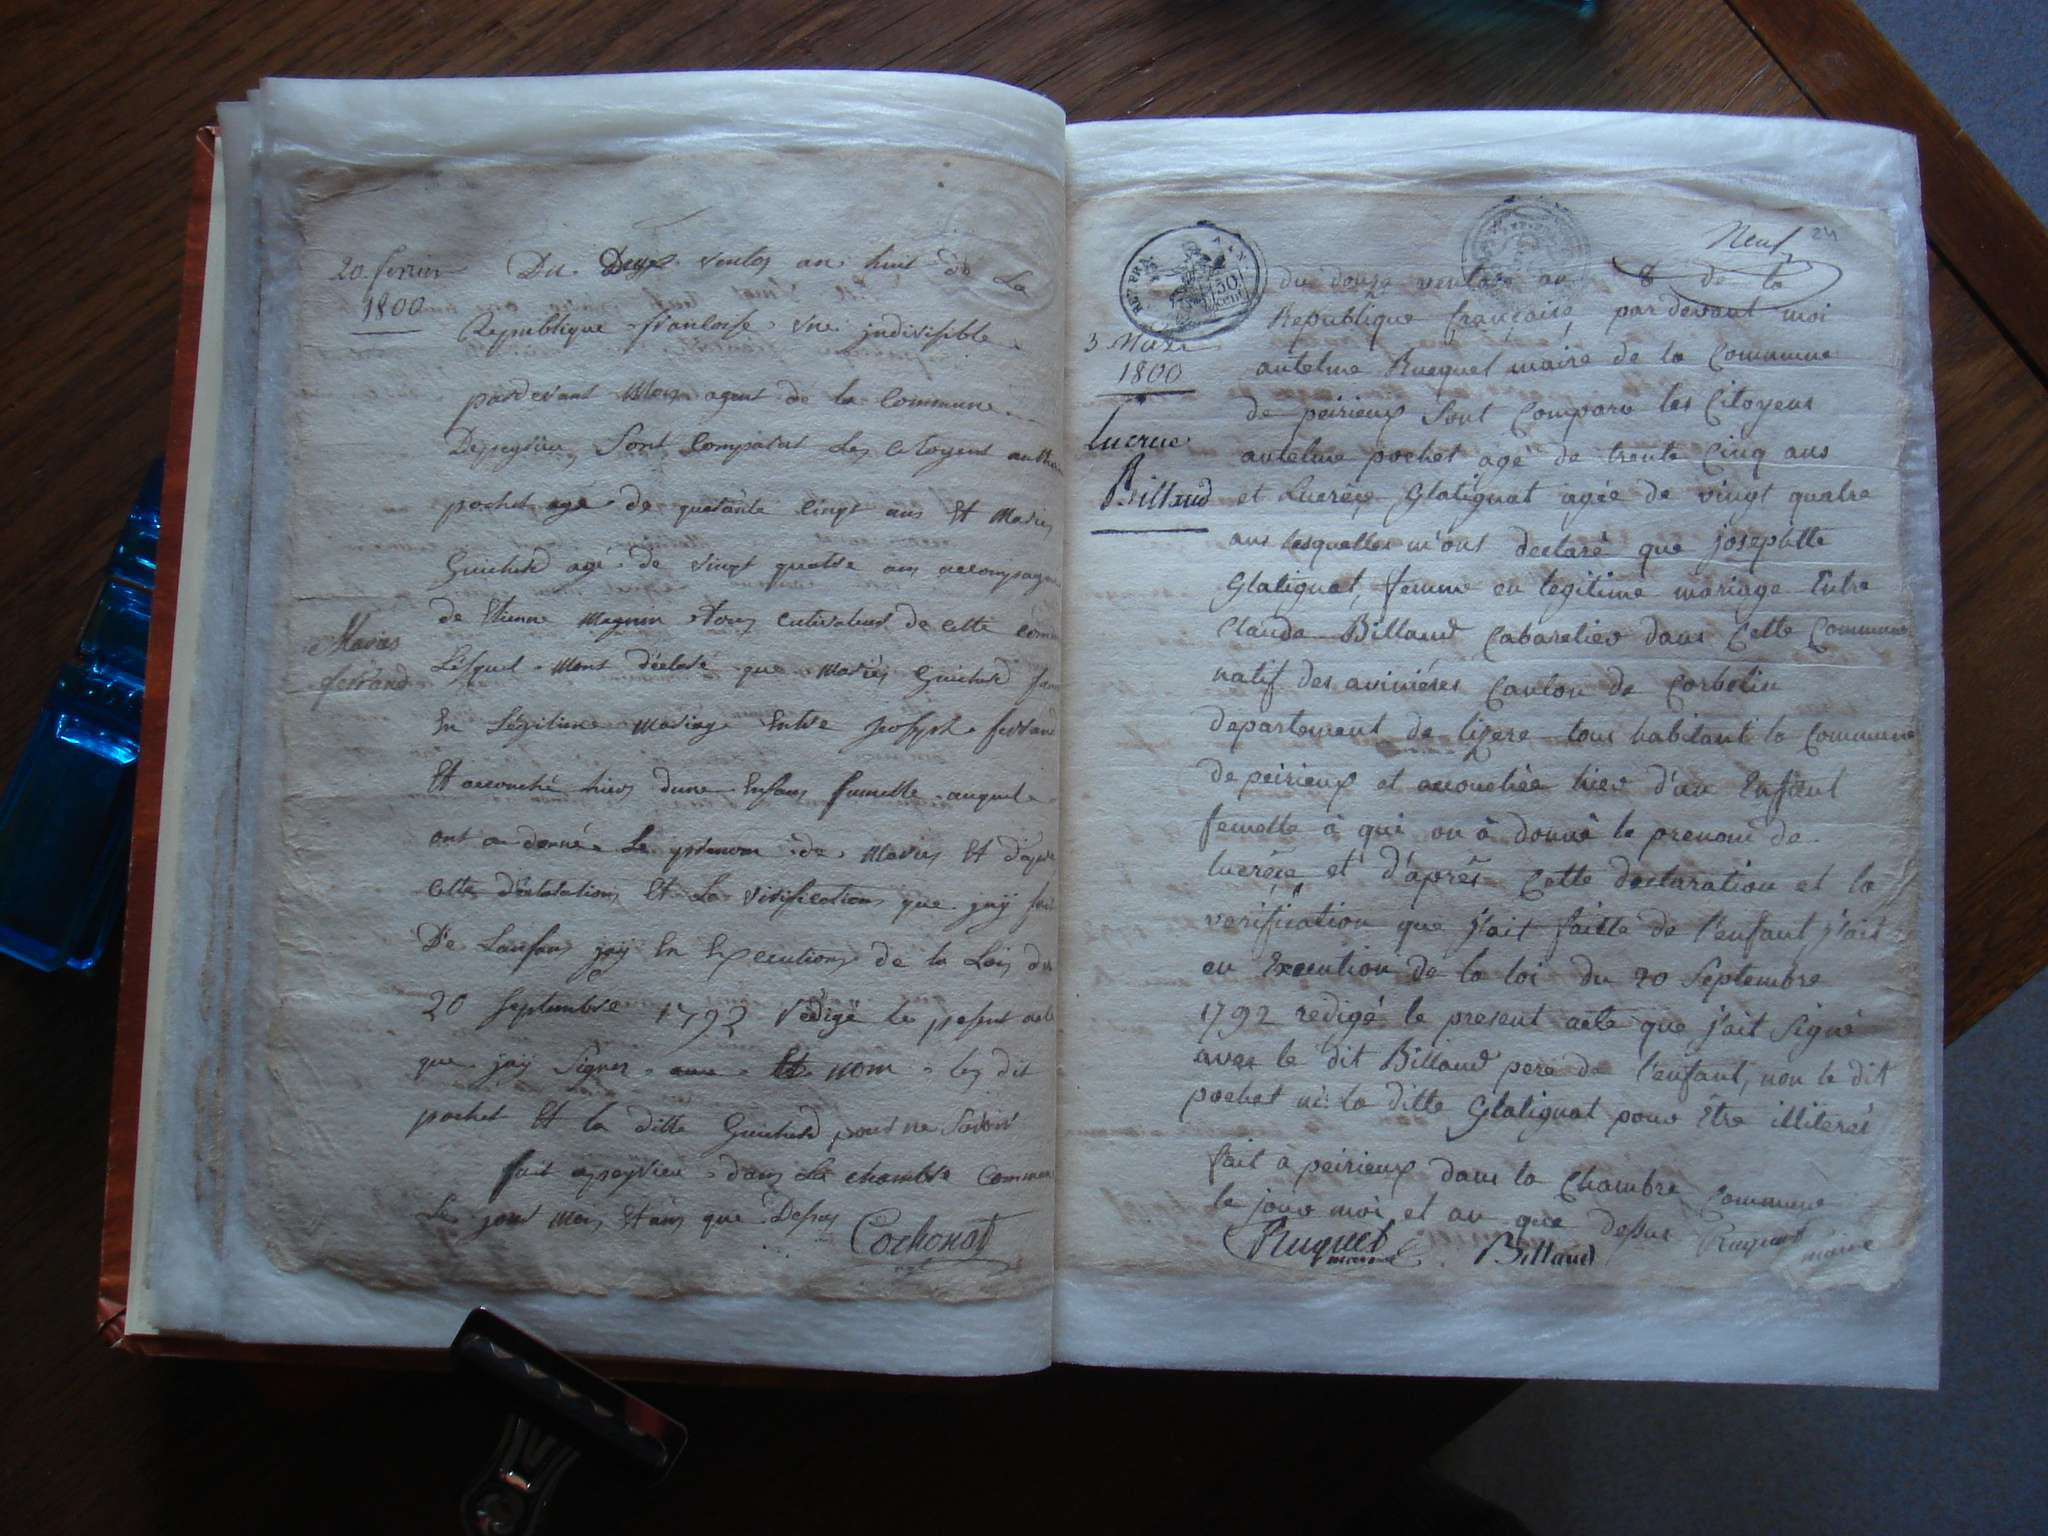 20 fevrier
1800
Du Deux ventos an huit de La
Republique francoise une indivisible
pardevant Moy agent de la Commune
Depeyrieu Sont Comparut Les Citoyens anthelme
pochet agé de quarante Cinqt ans Et Marie
Guicherd agé de vingt quatre ans accompagné
de Etienne Magnin tous cultivateurs de cette
Marie
ferrand
Lesquel Mont déclaré que Marie Guicherd
En Légitime Mariage Entre Joseph ferrand
Et accouché hier dune Enfans fumelle auquele
ont a donné Le prenom de Marie Et
cette declaration Et La verification que jay fait
De Lanfans jay En Execution de la Loi du
20 Septembre 1792 redigé Le present acte
que jay Signer Et nom les dit
pochet Et la ditte Guicherd pour ne Savoir
fait apeyrieu dans La chambre Commune
Le jour Mois Et an que Desus
Cochonat
Neuf
24
REP. FRA.
50
cent
3 Mars
1800
Lucrece
Billaud
du douze ventose an 8 de la
Republique française, pardevant moi
antelme Ruquet maire de la Commune
de peirieux Sont Comparu les Citoyens
antelme pochet agé de trente Cinq ans
et Lucrèce Glatignat agée de vingt quatre
ans lesquelles m'ont declaré que josephtte
Glatignat, femme en legitime mariage Entre
Claude Billaud Cabaretier dans Cette Commune
natif des avinieres Canton de Corbelin
departement de lizere tous habitant la Commune
de peirieux et accouchée hier d'un Enfant
femelle à qui on à donné le prenom de
lucrèce et d'après Cette declaration et la
verification que j'ait faitte de l'enfant j'ait
en Execution de la loi du 20 Septembre
1792 redigé le present acte que j'ait Signé
avec le dit Billaud pere de l'enfant, non le dit
pochet ni la ditte Glatignat pour être illiterés
fait a peirieux dans la Chambre Commune
le jour moi et an que dessus Ruquet
maire
Ruquet
Billaud